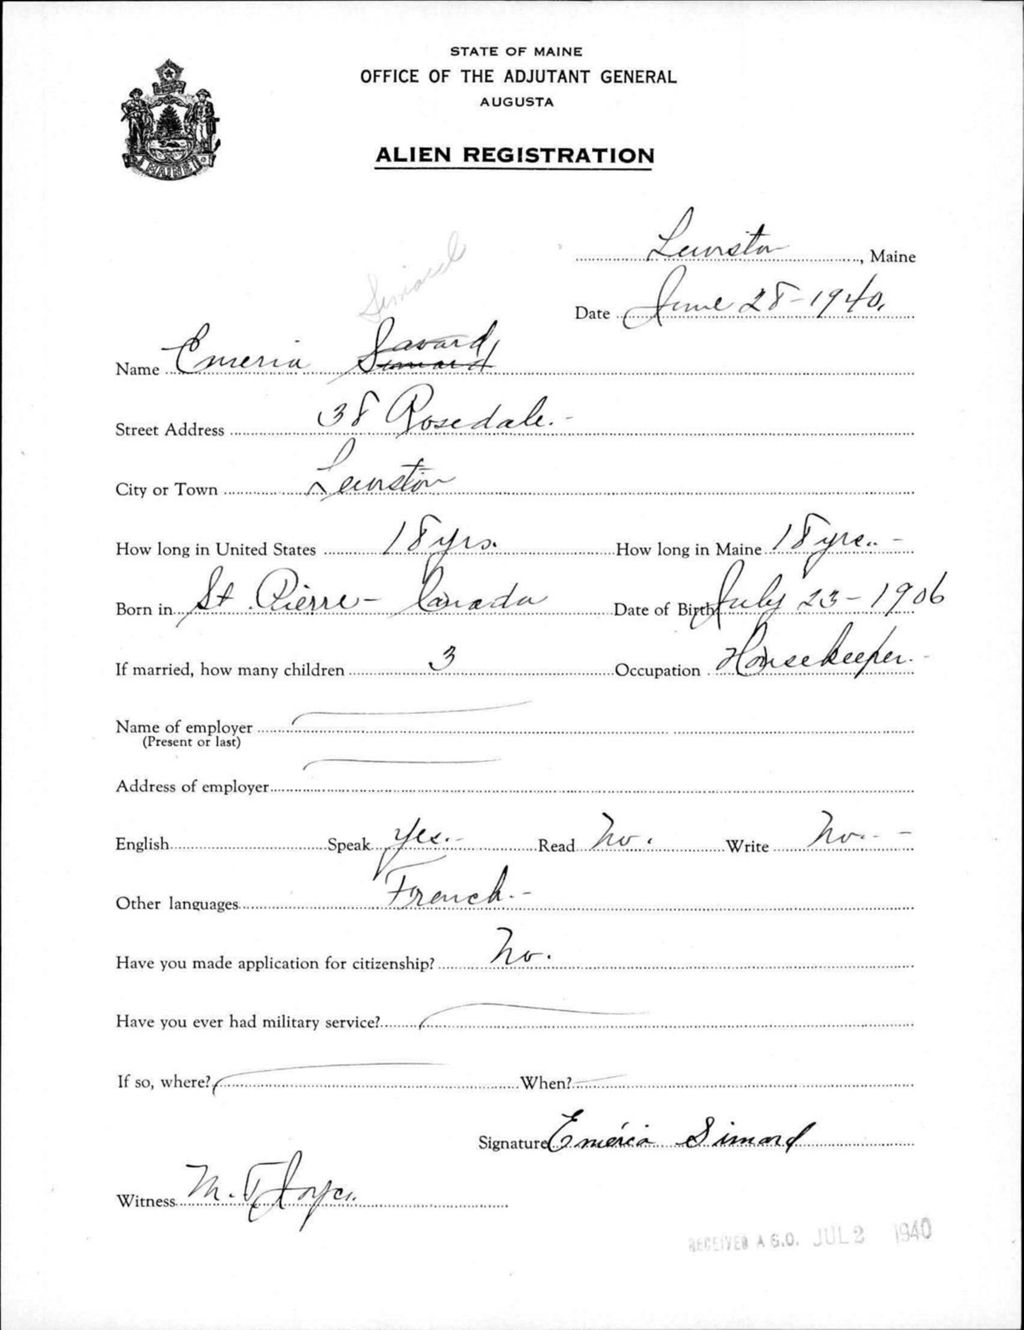 STATE OF MAINE
OFFICE OF THE ADJUTANT GENERAL
AUGUSTA
ALIEN REGISTRATION
MAINE
Lewiston, Maine
Simard
Date June 28-1940.
Name Emeria Simard Savard
Street Address 38 Rosedale.-
City or Town Lewiston
How long in United States 18 yrs. How long in Maine 18 yrs.. -
Born in St. Pierre - Canada Date of Birth July 23-1906
If married, how many children 3 Occupation Housekeeper. -
Name of employer
(Present or last)
Address of employer
English Speak Yes.- Read No. Write No.- -
Other languages French.-
Have you made application for citizenship? No.
Have you ever had military service?
If so, where? When?
Signature Eméria Simard
Witness M. F. Joyce.
RECEIVED A.G.O. JUL 2 1940